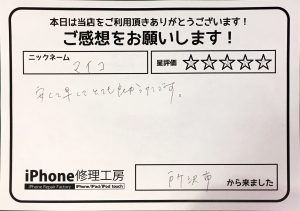 本日は当店をご利用頂きありがとうございます！
ご感想をお願いします！
ニックネーム
マイコ
星評価 ☆☆☆☆☆
安くて早くてとても良かったです。
iPhone修理工房
iPhone Repair Factory iPhone/iPad/iPod touch
所沢市 から来ました